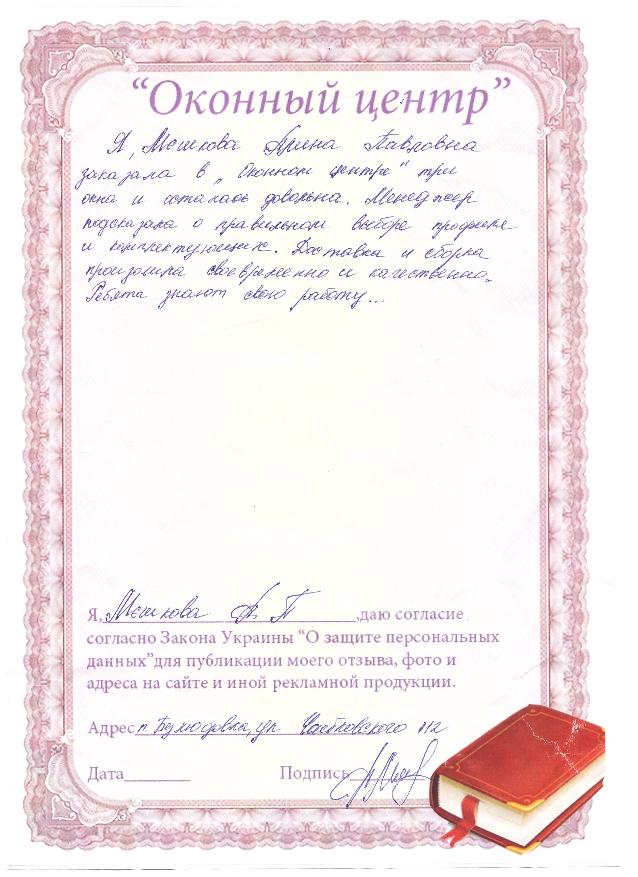 “Оконный центр”
Я, Мешкова Арина Павловна
заказала в „Оконном центре“ три
окна и осталась довольна. Менеджер
подсказала о правильном выборе профиля
и комплектующих. Доставка и сборка
произошла своевременно и качественно.
Ребята знают свою работу...
Я, Мешкова А. П ,даю согласие
согласно Закона Украины “О защите персональных
данных”для публикации моего отзыва, фото и
адреса на сайте и иной рекламной продукции.
Адрес п. Безлюдовка, ул.
Дата Подпись